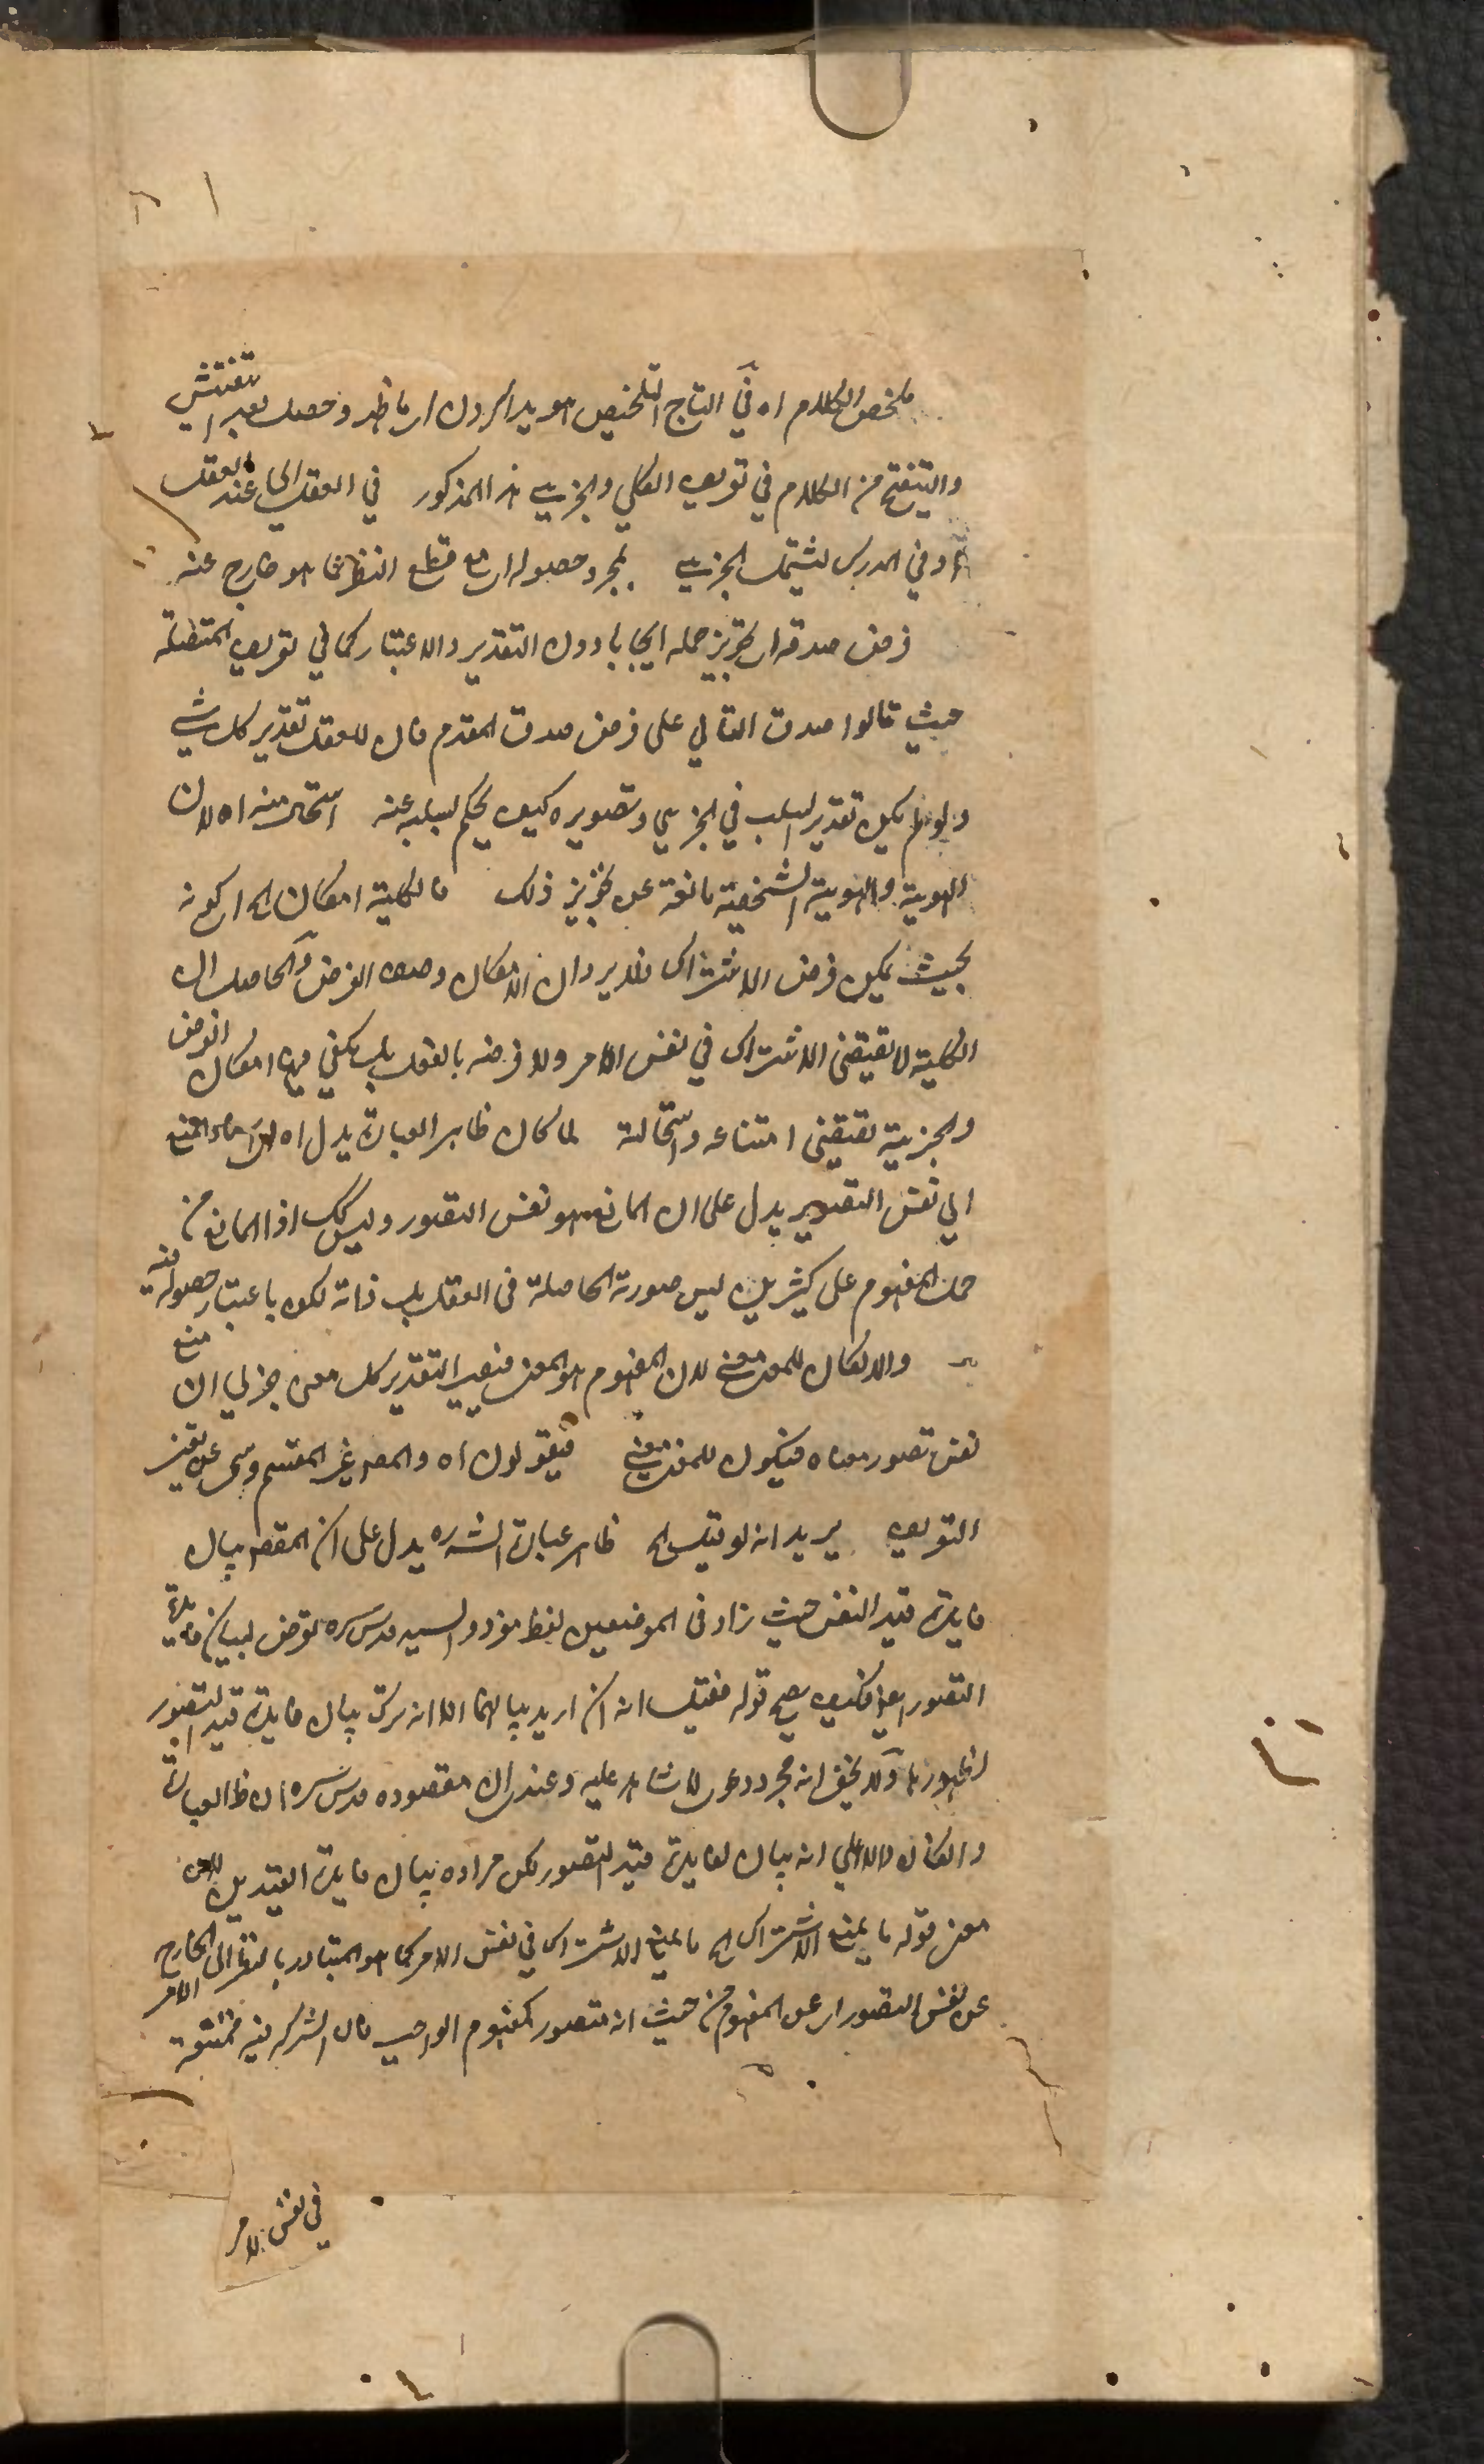 ملخص الكلام اه في التاج التلخيص هويدا كردن اي ما ظهر وحصل بعد التفتيش
والتنقيح من الكلام في تعريف الكلي والجزئي هذا المذكور في العقل اي عند العقل
او في المدرك ليشتمل الجزئي بمجرد حصوله اي مع قطع النظر عما هو خارج عنه
فرض صدقه اي تجويز حمله ايجابا دون التقدير والاعتبار كما في تعريف المتصلة
حيث قالوا صدق التالي على فرض صدق المقدم فان للعقل تقدير كل شي
ولو لم يكن تقدير السلب في الجزئي وتصويره كيف يحكم بسلبه عنه استحال منه اه لان
الهوية والهوية الشخصية مانعة عن تجويز ذلك فالكلية امكان الخ اي كونه
بحيث يمكن فرض الاشتراك فلا يرد ان الامكان وصف الفرض والحاصل ان
الكلية لا تقتضي الاشتراك في نفس الامر ولا فرضه بالفعل بل يكفي فيها امكان الفرض
والجزئية تقتضي امتناعه واستحالته لما كان ظاهر العبارة يدل اه لان اسناد المنع
الى نفس التصور يدل على ان المانع هو نفس التصور وليس كك اذ المانع من
حمل المفهوم على كثيرين ليس صورته الحاصلة في العقل بل ذاته لكن باعتبار حصوله فيه
والا لكان للمعنى معنى لان المفهوم هو المعنى فيصير التقدير كل معنى جزئي ان منع
نفس تصور معناه فيكون للمعنى معنى فيقولون اه والمص غير المقسم وسمى عن تغيير
التعريف يريد انه لو قيل الخ ظاهر عبارة الشره يدل على ان المقصود بيان
فايدة قيد النفس حيث زاد في الموضعين لفظ مجرد والسيد قدس سره تعرض لبيان فايدة
التصور ايضا فكيف يصح قوله فقيل انه ان اريد بيانهما الا انه ترك بيان فايدة قيد التصور
لظهورها ولا يخفى انه مجرد دعوى لا شاهد عليه وعندي ان مقصوده قدس سره ان ظ العبارة
وان كان دالا على انه بيان لفايدة قيد التصور لكن مراده بيان فايدة القيدين لان
معنى قوله ما يمنع الاشتراك الخ ما يمنع الاشتراك في نفس الامر كما هو المتبادر بالنظر الى الخارج
عن نفس التصور اي عن المفهوم من حيث انه متصور كمفهوم الواجب فان الشركة فيه ممتنعة
في نفس الامر